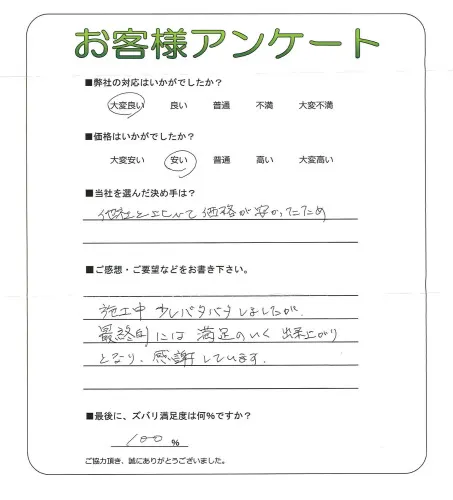 お客様アンケート
■弊社の対応はいかがでしたか？
大変良い 良い 普通 不満 大変不満
■価格はいかがでしたか？
大変安い 安い 普通 高い 大変高い
■当社を選んだ決め手は？
他社と比べて価格が安かったため
■ご感想・ご要望などをお書き下さい。
施工中 少しバタバタしましたが、
最終的には満足のいく出来上がり
となり、感謝しています。
■最後に、ズバリ満足度は何％ですか？
100 %
ご協力頂き、誠にありがとうございました。